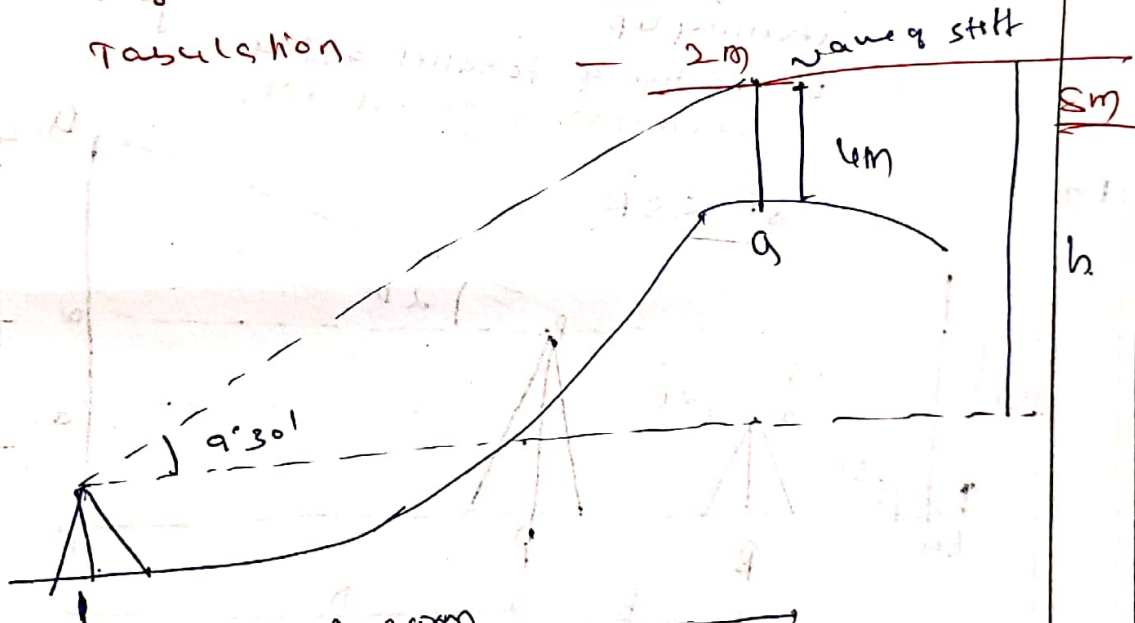 Tabulation
— 2m Vane of staff
5m
4m
Q
h
9°30'